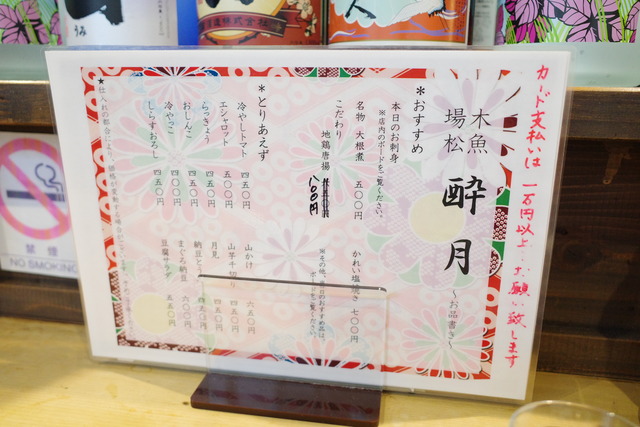 カード支払いは 一万円以上…お願い致します
木場
魚松
酔月
～お品書き～
＊おすすめ
本日のお刺身
※店内のボードをご覧ください。
名物 大根煮 五〇〇円
かれい塩焼き 七〇〇円
こだわり 地鶏唐揚 八〇〇円
＊とりあえず
冷やしトマト 四五〇円
エシャロット 五〇〇円
らっきょう 四五〇円
おしんこ 四五〇円
冷やっこ 四〇〇円
しらすおろし 四五〇円
山かけ 六五〇円
山芋千切り 五五〇円
月見
納豆
まぐろ納豆
豆腐サラダ 五五〇円
禁煙
NO SMOKING
うみ